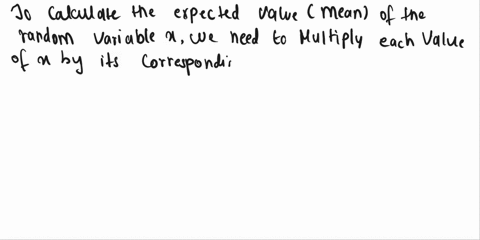 To calculate the expected value (mean) of the
random variable x, we need to Multiply each value
of x by its correspondi